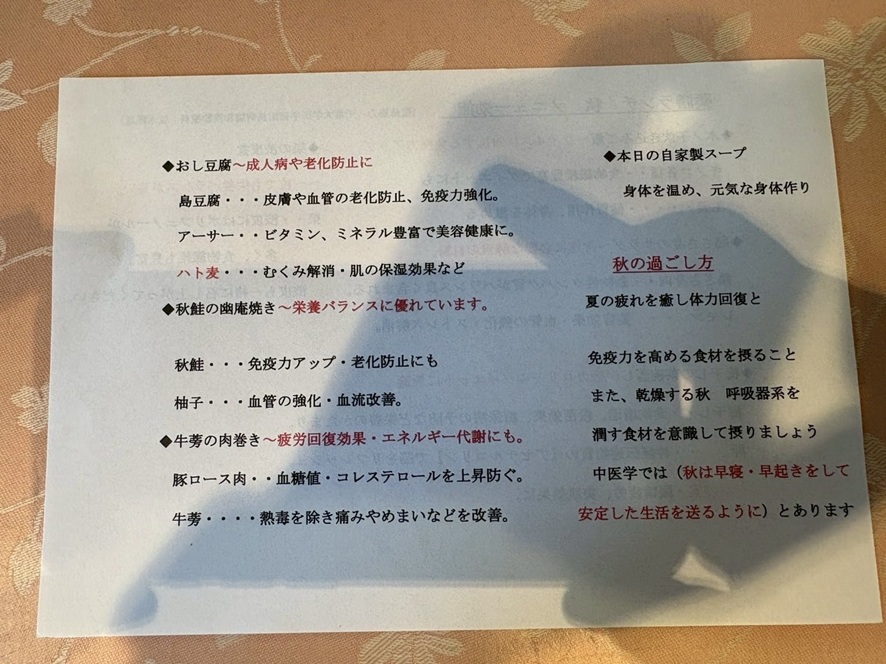 ◆おし豆腐～成人病や老化防止に
島豆腐・・・皮膚や血管の老化防止、免疫力強化。
アーサー・・ビタミン、ミネラル豊富で美容健康に。
ハト麦・・・むくみ解消・肌の保湿効果など
◆秋鮭の幽庵焼き～栄養バランスに優れています。
秋鮭・・・免疫力アップ・老化防止にも
柚子・・・血管の強化・血流改善。
◆牛蒡の肉巻き～疲労回復効果・エネルギー代謝にも。
豚ロース肉・・血糖値・コレステロールを上昇防ぐ。
牛蒡・・・・熱毒を除き痛みやめまいなどを改善。
◆本日の自家製スープ
身体を温め、元気な身体作り
秋の過ごし方
夏の疲れを癒し体力回復と
免疫力を高める食材を摂ること
また、乾燥する秋　呼吸器系を
潤す食材を意識して摂りましょう
中医学では（秋は早寝・早起きをして
安定した生活を送るように）とあります